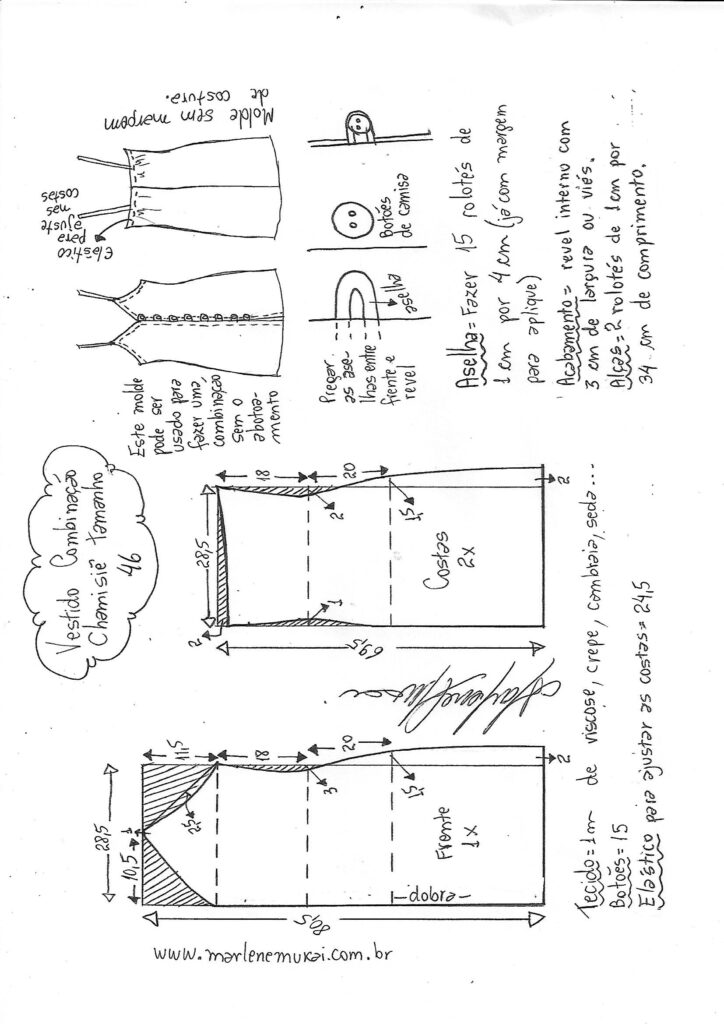 Vestido Combinação
Chamisiê Tamanho
46
Este molde
pode ser
usado para
fazer uma
combinação
sem o
abotoa-
mento
Elástico
para
ajuste
nas
costas
Molde sem margem
de costura.
Pregar
as ase-
lhas entre
frente e
revel
aselha
Botões
de camisa
Aselha = Fazer 15 rolotés de
1 cm por 4 cm (já com margem
para aplique)
Acabamento = revel interno com
3 cm de largura ou viés.
Alças = 2 rolotés de 1 cm por
34 cm de comprimento.
28,5
10,5
1
11,5
2,5
18
20
3
1,5
2
80,5
Frente
1x
—dobra—
28,5
18
20
2
1,5
1
2
2
69,5
Costas
2x
Tecido = 1 m de viscose, crepe, cambraia, seda...
Botões = 15
Elástico para ajustar as costas = 24,5
www.marlenemukai.com.br